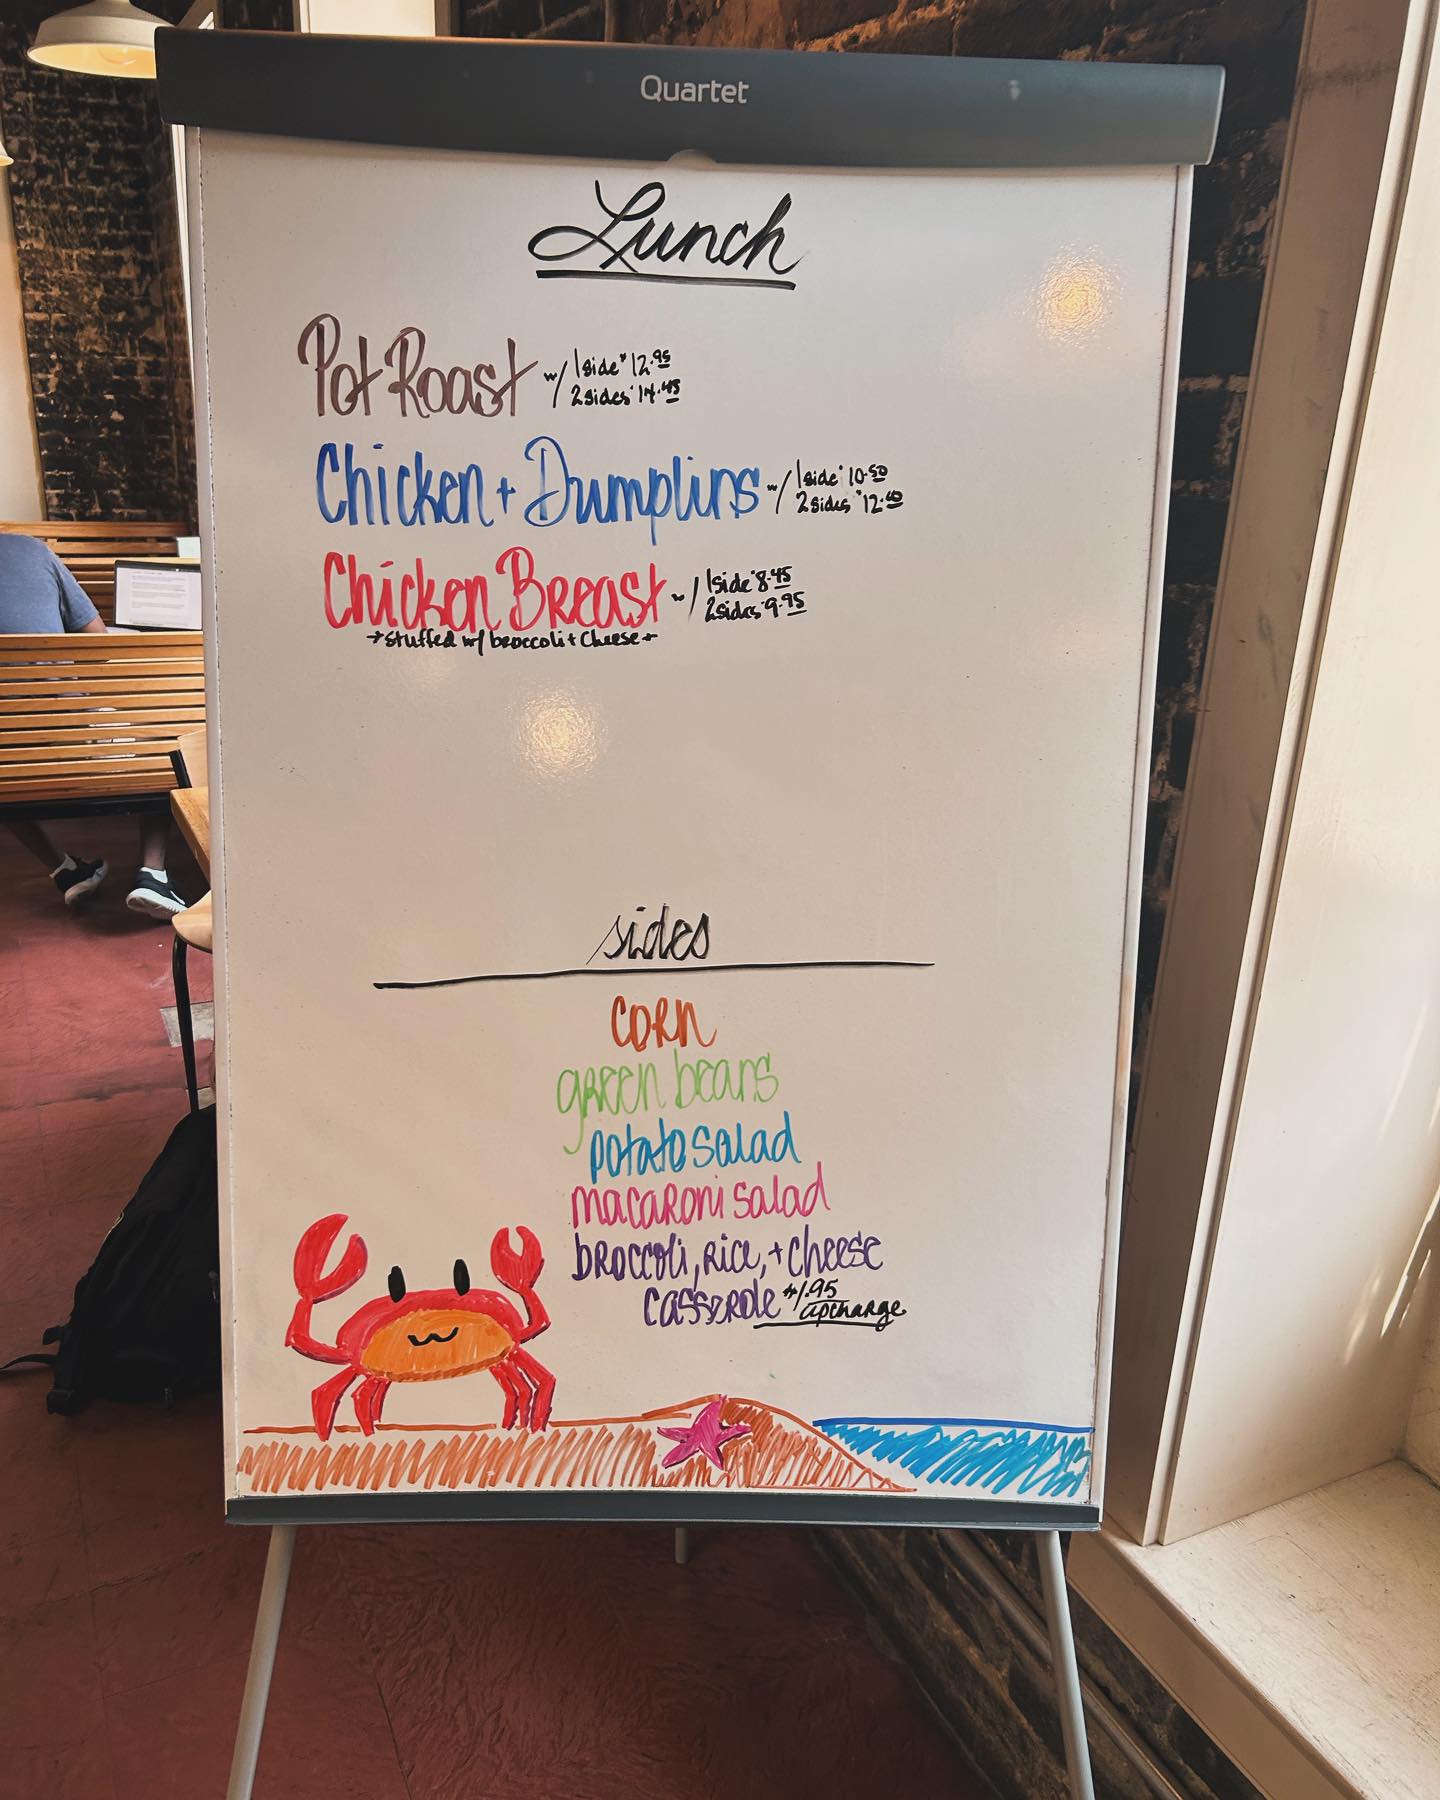 Quartet
Lunch
Pot Roast w/ 1 side $12.95
2 sides $14.45
Chicken + Dumplins w/ 1 side $10.50
2 sides $12.00
Chicken Breast w/ 1 side $8.45
2 sides $9.95
→ stuffed w/ broccoli + cheese ←
sides
corn
green beans
potato salad
macaroni salad
broccoli, rice, + cheese
casserole $1.95
upcharge